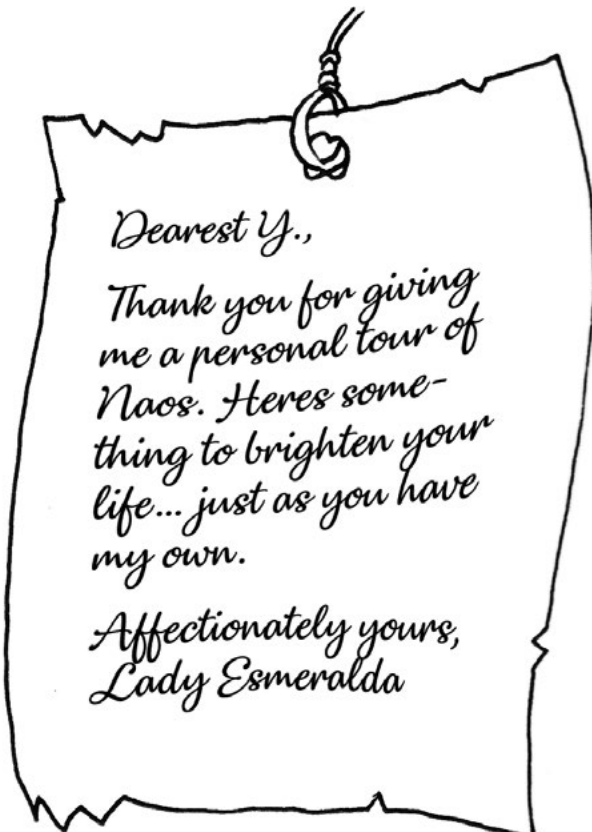 Dearest Y.,
Thank you for giving
me a personal tour of
Naos. Heres some-
thing to brighten your
life... just as you have
my own.
Affectionately yours,
Lady Esmeralda